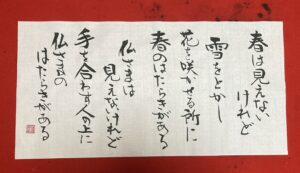 春は見えない
けれど
雪をとかし
花を咲かせる所に
春のはたらきがある
仏さまは
見えないけれど
手を合わす人の上に
仏さまの
はたらきがある